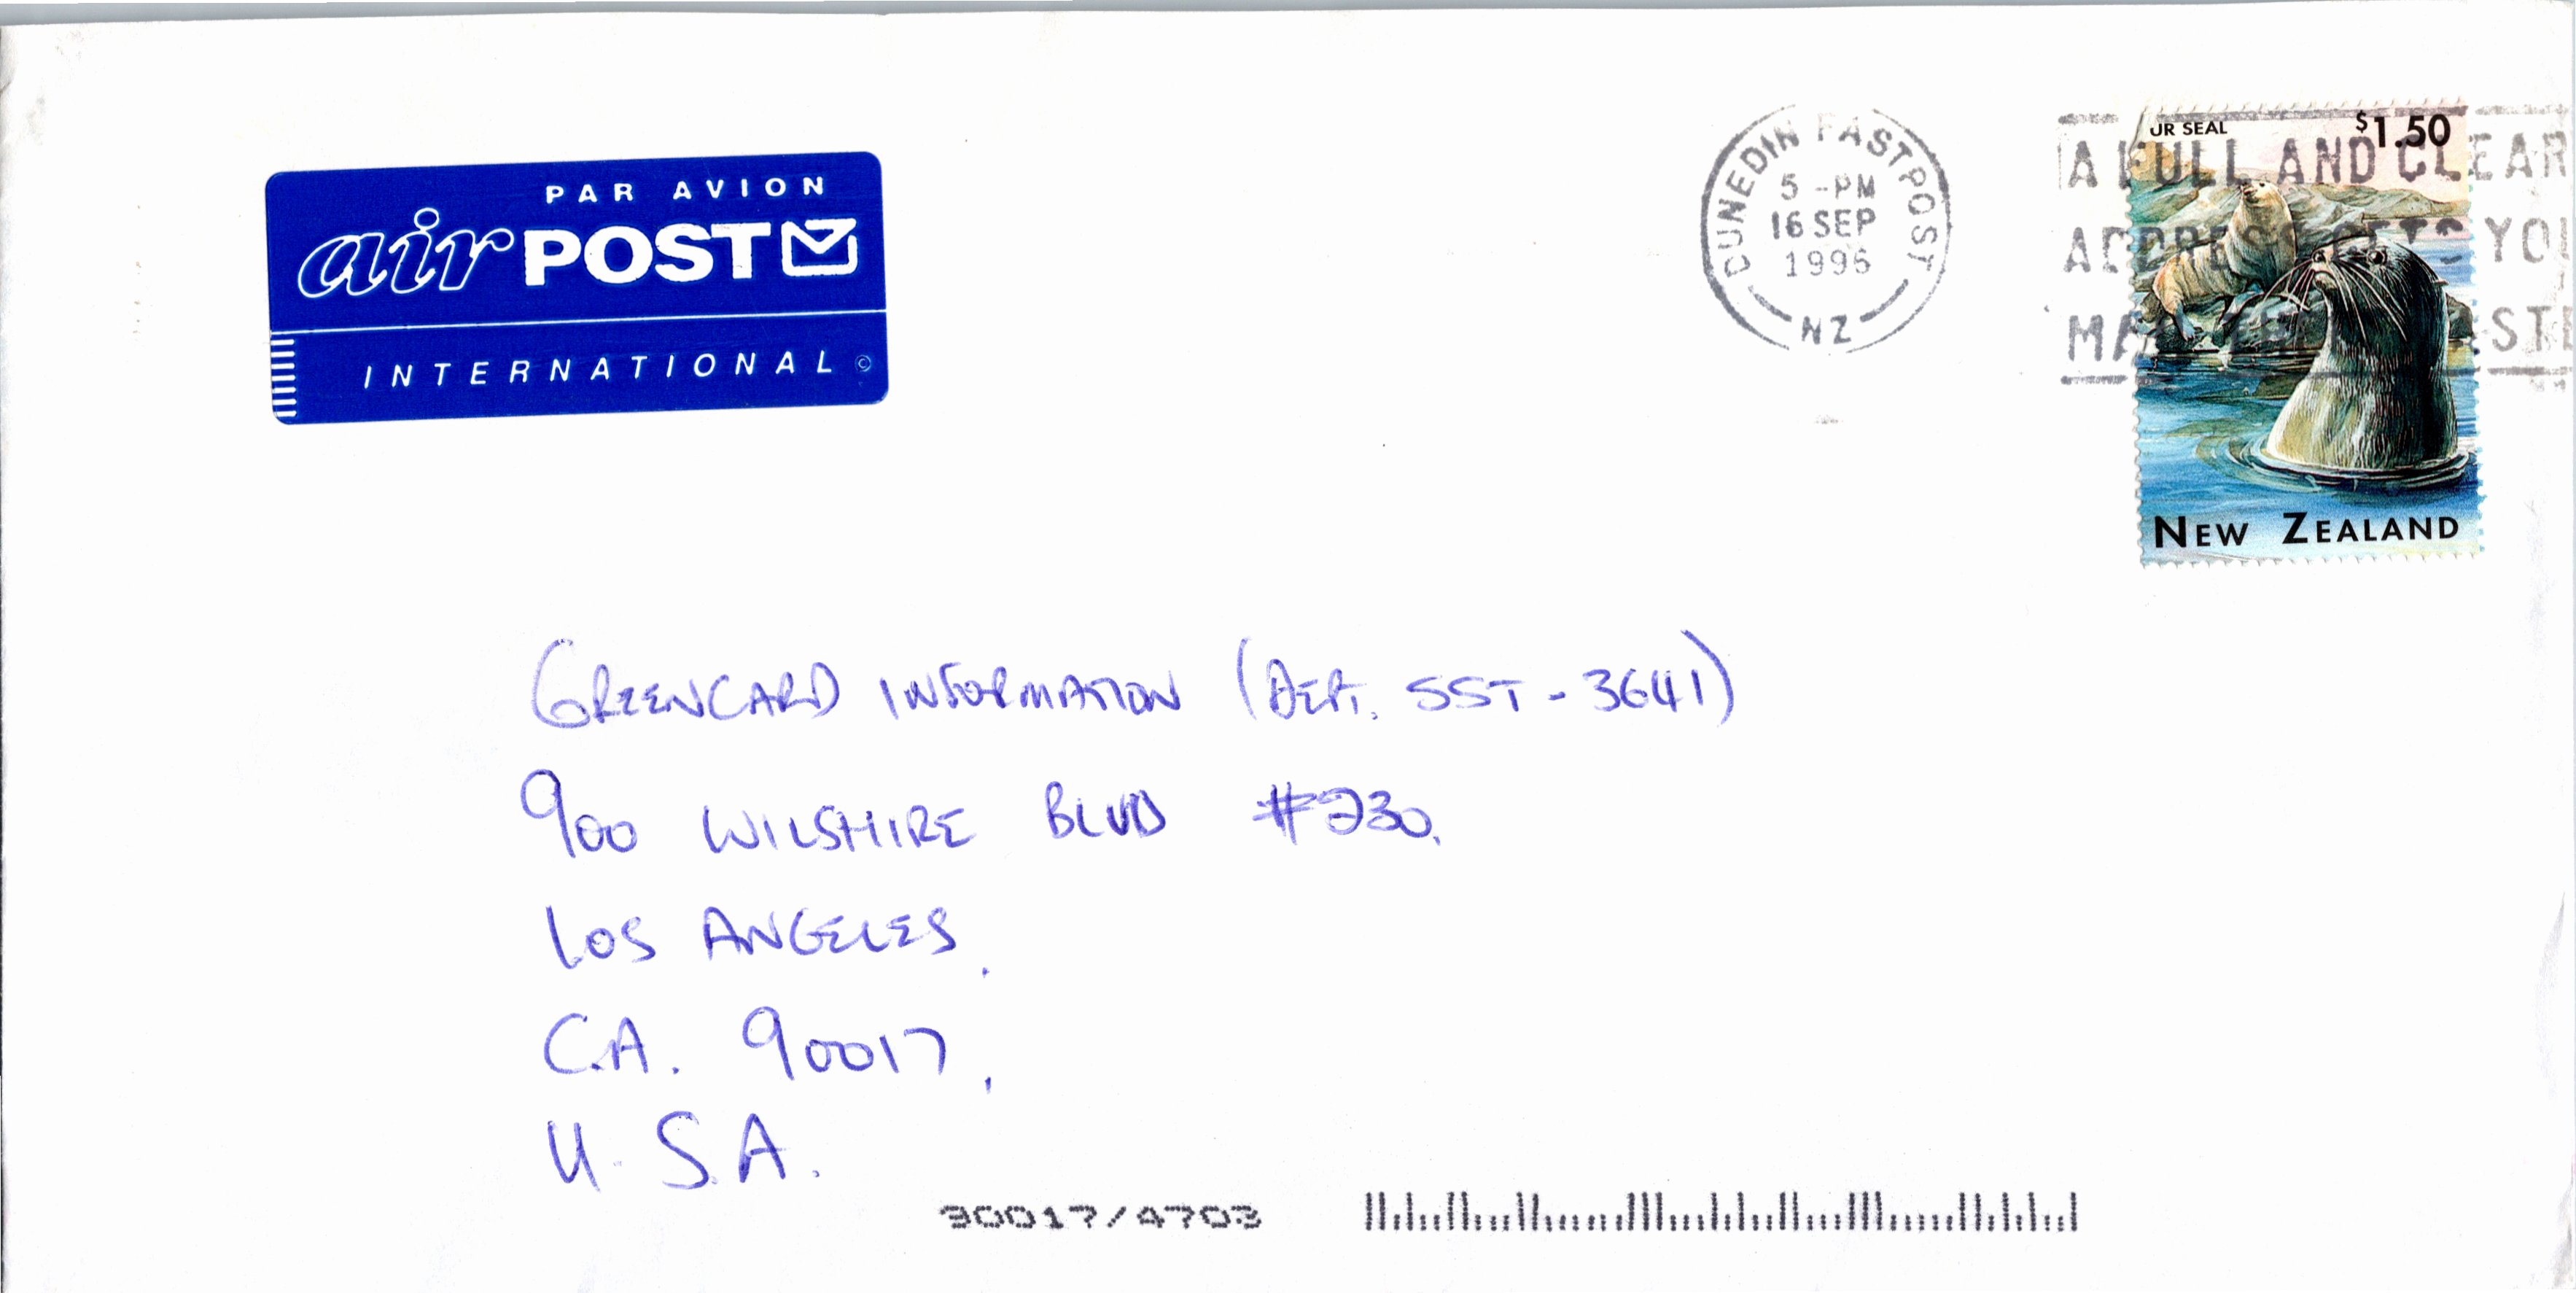 PAR AVION
air POST
INTERNATIONAL ©
DUNEDIN FASTPOST
5 -PM
16 SEP
1996
NZ
A FULL AND CLEAR
ADDRESS GETS YO
MA
UR SEAL $1.50
NEW ZEALAND
GREENCARD INFORMATION (DEPT. SST-3641)
900 WILSHIRE BLVD #230.
LOS ANGELES.
C.A. 90017,
U.S.A.
90017/4703